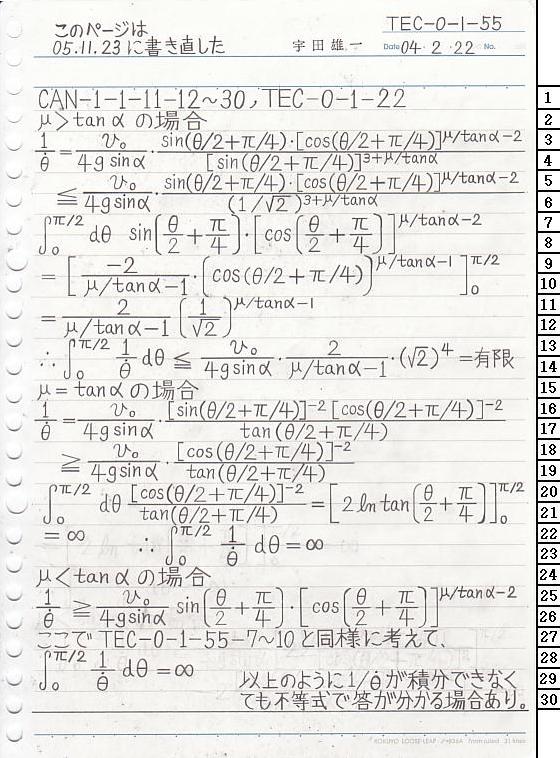 このページは
05.11.23に書き直した
宇田雄一
TEC-0-1-55
Date 04・2・22 No.
CAN-1-1-11-12～30, TEC-0-1-22
μ>tanαの場合
1/θ̇ = v₀/(4g sinα)・sin(θ/2+π/4)・[cos(θ/2+π/4)]^(μ/tanα-2) / [sin(θ/2+π/4)]^(3+μ/tanα)
≦ v₀/(4g sinα)・sin(θ/2+π/4)・[cos(θ/2+π/4)]^(μ/tanα-2) / (1/√2)^(3+μ/tanα)
∫₀^(π/2) dθ sin(θ/2+π/4)・[cos(θ/2+π/4)]^(μ/tanα-2)
= [ -2/(μ/tanα-1)・(cos(θ/2+π/4))^(μ/tanα-1) ]₀^(π/2)
= 2/(μ/tanα-1) (1/√2)^(μ/tanα-1)
∴∫₀^(π/2) 1/θ̇ dθ ≦ v₀/(4g sinα)・2/(μ/tanα-1)・(√2)^4 =有限
μ=tanαの場合
1/θ̇ = v₀/(4g sinα)・[sin(θ/2+π/4)]^(-2) [cos(θ/2+π/4)]^(-2) / tan(θ/2+π/4)
≧ v₀/(4g sinα)・[cos(θ/2+π/4)]^(-2) / tan(θ/2+π/4)
∫₀^(π/2) dθ [cos(θ/2+π/4)]^(-2) / tan(θ/2+π/4) = [2 ln tan(θ/2+π/4)]₀^(π/2)
=∞ ∴∫₀^(π/2) 1/θ̇ dθ=∞
μ<tanαの場合
1/θ̇ ≧ v₀/(4g sinα) sin(θ/2+π/4)・[cos(θ/2+π/4)]^(μ/tanα-2)
ここでTEC-0-1-55-7～10と同様に考えて、
∫₀^(π/2) 1/θ̇ dθ=∞
以上のように1/θ̇が積分できなく
ても不等式で答が分かる場合あり。
1
2
3
4
5
6
7
8
9
10
11
12
13
14
15
16
17
18
19
20
21
22
23
24
25
26
27
28
29
30
KOKUYO LOOSE-LEAF